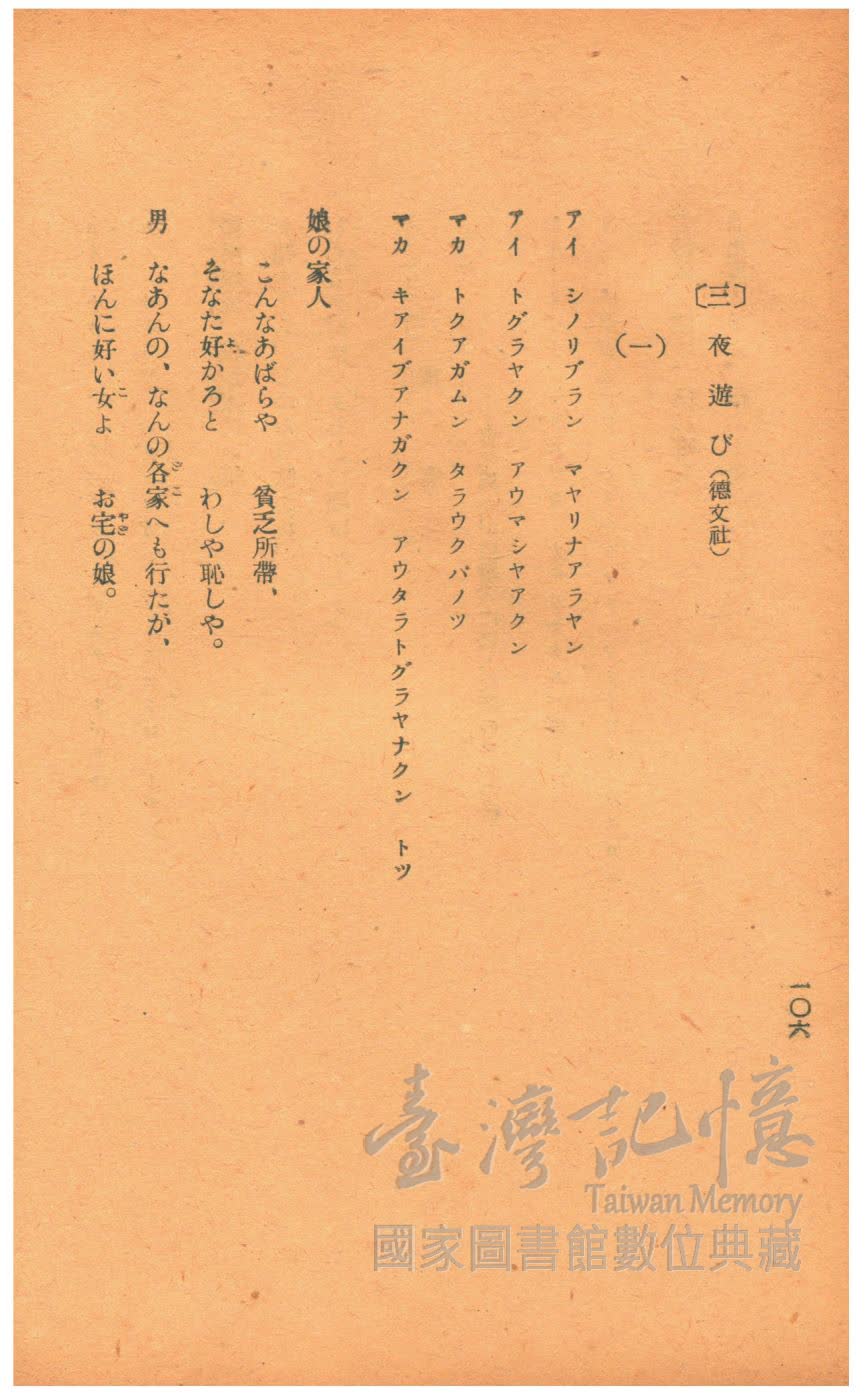 一〇六
〔三〕 夜遊び(德文社)
(一)
アイ シノリブラン マヤリナアラヤン
アイ トグラヤクン アウマシヤアクン
マカ トクアガムン タラウクパノツ
マカ キアイブアナガクン アウタラトグラヤナクン トツ
娘の家人
こんなあばらや 貧乏所帶、
そなた好かろと わしや恥しや。
男 なあんの、なんの各家へも行たが、
ほんに好い女よ お宅の娘。
臺灣記憶
Taiwan Memory
國家圖書館數位典藏